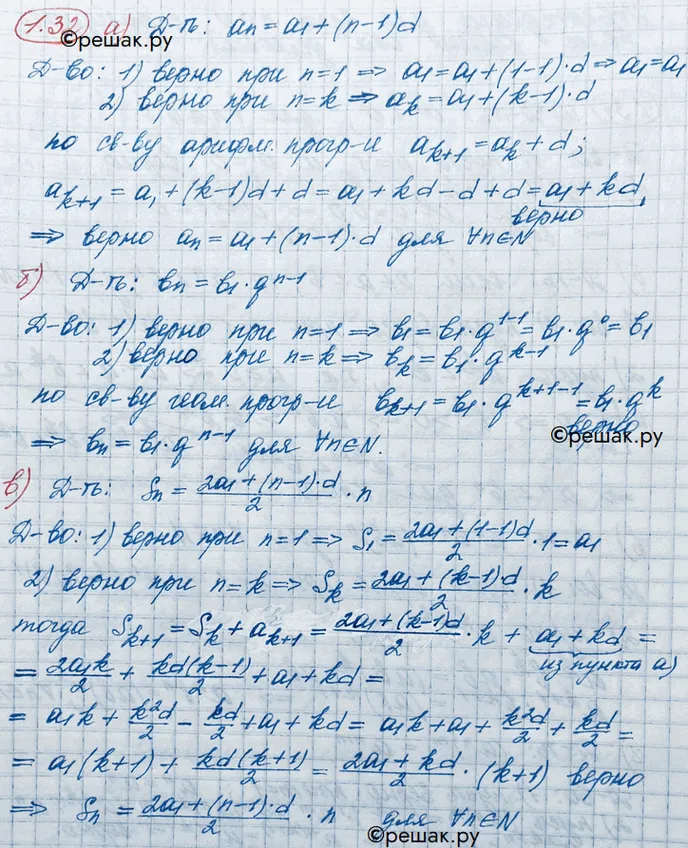 1.32 а) Д-ть: aₙ = a₁ + (n-1)d
©решак.ру
Д-во: 1) верно при n=1 ⇒ a₁ = a₁ + (1-1)·d ⇒ a₁ = a₁
2) верно при n=k ⇒ aₖ = a₁ + (k-1)·d
по св-ву арифм. прогр-и aₖ₊₁ = aₖ + d;
aₖ₊₁ = a₁ + (k-1)d + d = a₁ + kd - d + d = a₁ + kd,
верно
⇒ верно aₙ = a₁ + (n-1)·d для ∀n∈N
б) Д-ть: bₙ = b₁·qⁿ⁻¹
Д-во: 1) верно при n=1 ⇒ b₁ = b₁·q¹⁻¹ = b₁·q⁰ = b₁
2) верно при n=k ⇒ bₖ = b₁·qᵏ⁻¹
по св-ву геом. прогр-и bₖ₊₁ = b₁·qᵏ⁺¹⁻¹ = b₁·qᵏ
верно
⇒ bₙ = b₁·qⁿ⁻¹ для ∀n∈N.
©решак.ру
в) Д-ть: Sₙ = (2a₁ + (n-1)·d)/2 · n
Д-во: 1) верно при n=1 ⇒ S₁ = (2a₁ + (1-1)d)/2 · 1 = a₁
2) верно при n=k ⇒ Sₖ = (2a₁ + (k-1)·d)/2 · k
тогда Sₖ₊₁ = Sₖ + aₖ₊₁ = (2a₁ + (k-1)d)/2 · k + a₁ + kd =
из пункта а)
= 2a₁k/2 + kd(k-1)/2 + a₁ + kd =
= a₁k + k²d/2 - kd/2 + a₁ + kd = a₁k + a₁ + k²d/2 + kd/2 =
= a₁(k+1) + kd(k+1)/2 = (2a₁ + kd)/2 · (k+1) верно
⇒ Sₙ = (2a₁ + (n-1)·d)/2 · n для ∀n∈N
©решак.ру